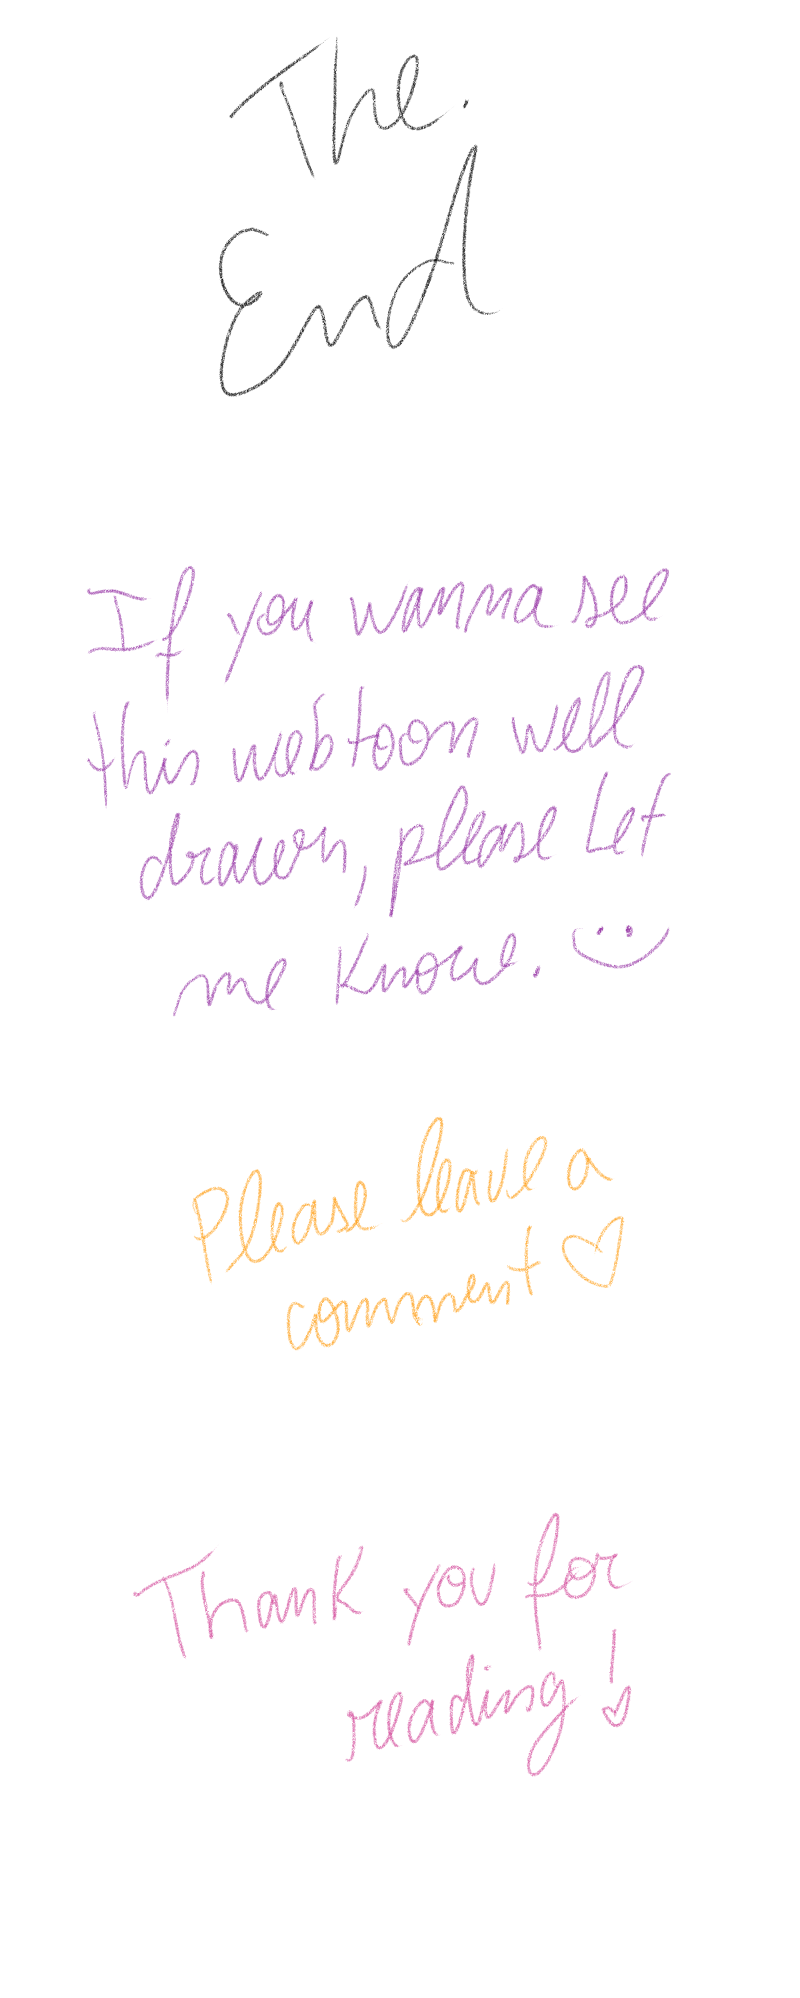 The.
End
If you wanna see
this webtoon well
drawn, please Let
me know. 
Please leave a
comment ♡
Thank you for
reading!